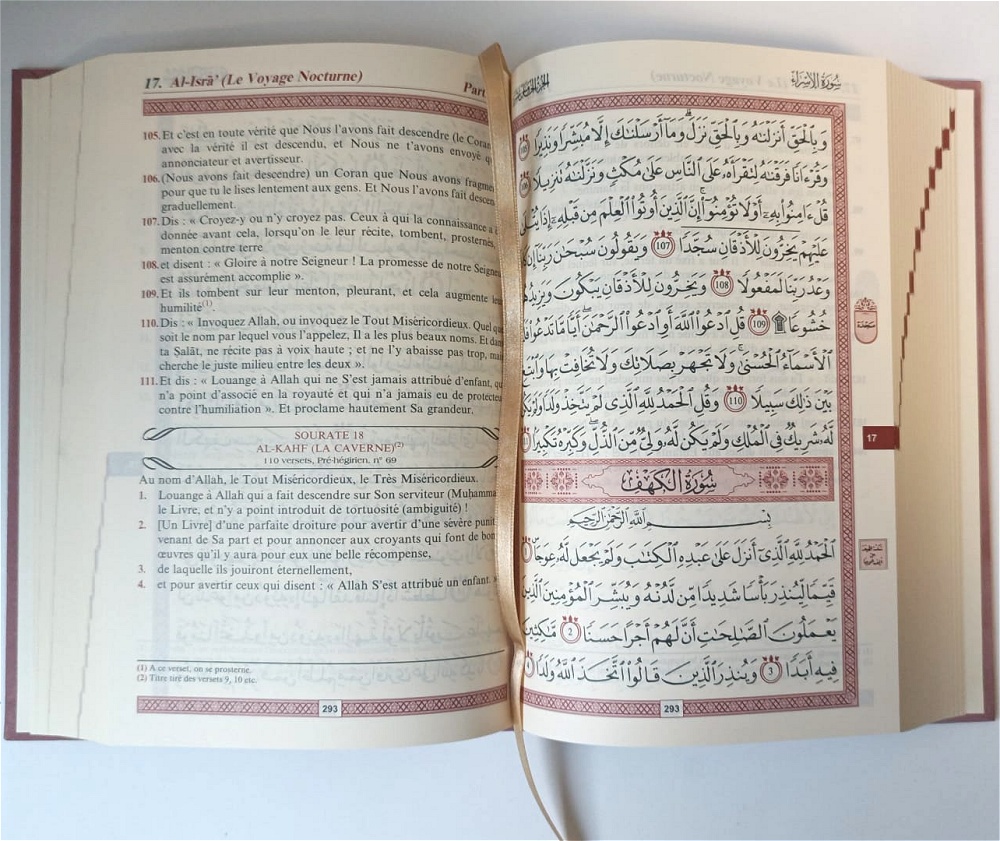 17. Al-Isrā' (Le Voyage Nocturne)
Part
105. Et c'est en toute vérité que Nous l'avons fait descendre (le Coran
avec la vérité il est descendu, et Nous ne t'avons envoyé
annonciateur et avertisseur.
106. (Nous avons fait descendre) un Coran que Nous avons
pour que tu le lises lentement aux gens. Et Nous l'avons fait
graduellement.
107. Dis : « Croyez-y ou n'y croyez pas. Ceux à qui la connaissance a
donnée avant cela, lorsqu'on le leur récite, tombent, prosternés,
menton contre terre
108. et disent : « Gloire à notre Seigneur ! La promesse de notre
est assurément accomplie ».
109. Et ils tombent sur leur menton, pleurant, et cela augmente leur
humilité(1).
110. Dis : « Invoquez Allah, ou invoquez le Tout Miséricordieux. Quel que
soit le nom par lequel vous l'appelez, Il a les plus beaux noms. Et dans
ta Ṣalāt, ne récite pas à voix haute ; et ne l'y abaisse pas trop, mais
cherche le juste milieu entre les deux ».
111. Et dis : « Louange à Allah qui ne S'est jamais attribué d'enfant, qui
n'a point d'associé en la royauté et qui n'a jamais eu de protecteur
contre l'humiliation ». Et proclame hautement Sa grandeur.
SOURATE 18
AL-KAHF (LA CAVERNE)(2)
110 versets, Pré-hégirien, n° 69
Au nom d'Allah, le Tout Miséricordieux, le Très Miséricordieux.
1. Louange à Allah qui a fait descendre sur Son serviteur
le Livre, et n'y a point introduit de tortuosité (ambiguïté) !
2. [Un Livre] d'une parfaite droiture pour avertir d'une sévère
venant de Sa part et pour annoncer aux croyants qui font de
œuvres qu'il y aura pour eux une belle récompense,
3. de laquelle ils jouiront éternellement,
4. et pour avertir ceux qui disent : « Allah S'est attribué un enfant. »
(1) A ce verset, on se prosterne.
(2) Titre tiré des versets 9, 10 etc.
293
سُورَةُ الإِسْرَاءِ
وَبِٱلْحَقِّ أَنزَلْنَٰهُ وَبِٱلْحَقِّ نَزَلَ ۗ وَمَآ أَرْسَلْنَٰكَ إِلَّا مُبَشِّرًا وَنَذِيرًا 105
وَقُرْءَانًا فَرَقْنَٰهُ لِتَقْرَأَهُۥ عَلَى ٱلنَّاسِ عَلَىٰ مُكْثٍ وَنَزَّلْنَٰهُ تَنزِيلًا 106
قُلْ ءَامِنُوا۟ بِهِۦٓ أَوْ لَا تُؤْمِنُوٓا۟ ۚ إِنَّ ٱلَّذِينَ أُوتُوا۟ ٱلْعِلْمَ مِن قَبْلِهِۦٓ إِذَا
عَلَيْهِمْ يَخِرُّونَ لِلْأَذْقَانِ سُجَّدًا 107 وَيَقُولُونَ سُبْحَٰنَ رَبِّنَآ إِن
وَعْدُ رَبِّنَا لَمَفْعُولًا 108 وَيَخِرُّونَ لِلْأَذْقَانِ يَبْكُونَ
خُشُوعًا ۩ 109 قُلِ ٱدْعُوا۟ ٱللَّهَ أَوِ ٱدْعُوا۟ ٱلرَّحْمَٰنَ ۖ أَيًّا مَّا تَدْعُوا۟
ٱلْأَسْمَآءُ ٱلْحُسْنَىٰ ۚ وَلَا تَجْهَرْ بِصَلَاتِكَ وَلَا تُخَافِتْ بِهَا
بَيْنَ ذَٰلِكَ سَبِيلًا 110 وَقُلِ ٱلْحَمْدُ لِلَّهِ ٱلَّذِى لَمْ يَتَّخِذْ وَلَدًا وَلَمْ
لَّهُۥ شَرِيكٌ فِى ٱلْمُلْكِ وَلَمْ يَكُن لَّهُۥ وَلِىٌّ مِّنَ ٱلذُّلِّ ۖ وَكَبِّرْهُ تَكْبِيرًۢا
سُورَةُ الكَهْفِ
بِسْمِ ٱللَّهِ ٱلرَّحْمَٰنِ ٱلرَّحِيمِ
ٱلْحَمْدُ لِلَّهِ ٱلَّذِىٓ أَنزَلَ عَلَىٰ عَبْدِهِ ٱلْكِتَٰبَ وَلَمْ يَجْعَل لَّهُۥ عِوَجَا
قَيِّمًا لِّيُنذِرَ بَأْسًا شَدِيدًا مِّن لَّدُنْهُ وَيُبَشِّرَ ٱلْمُؤْمِنِينَ ٱلَّذِينَ
يَعْمَلُونَ ٱلصَّٰلِحَٰتِ أَنَّ لَهُمْ أَجْرًا حَسَنًا 2 مَّٰكِثِينَ
فِيهِ أَبَدًا 3 وَيُنذِرَ ٱلَّذِينَ قَالُوا۟ ٱتَّخَذَ ٱللَّهُ وَلَدًا
293
سَجْدَة
17